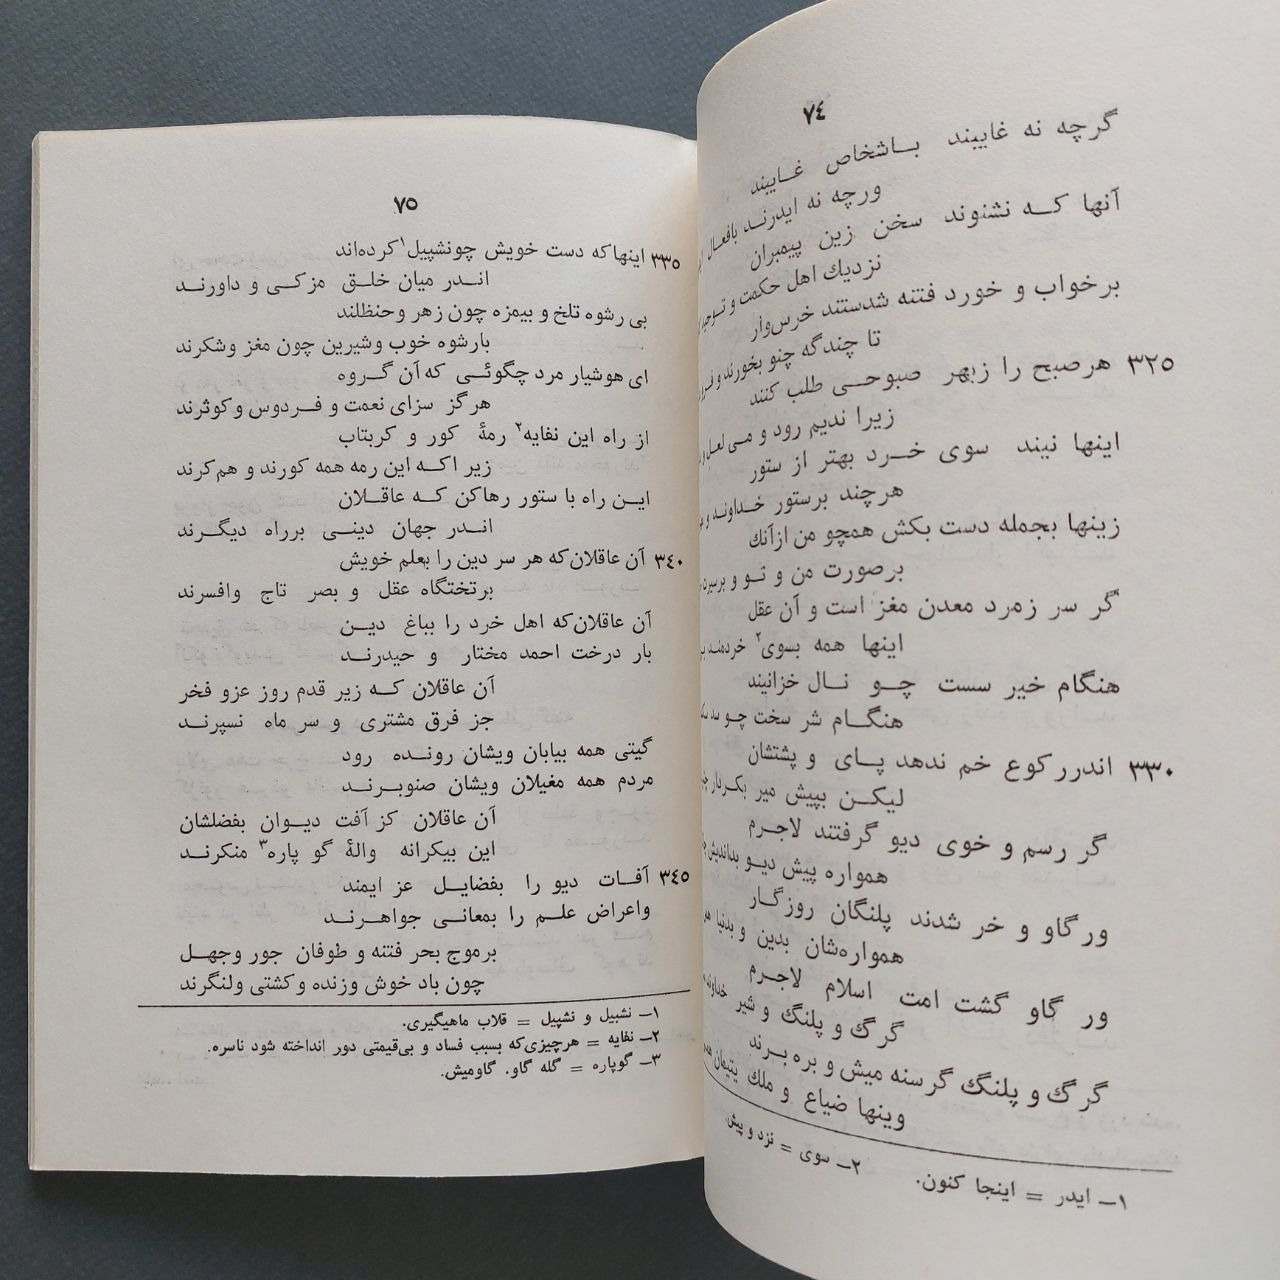 ٧٤
گرچه نه غایبند باشخاص غایبند
ورچه نه ایدرند بافعال
آنها که نشنوند سخن زین پیمبران
نزدیك اهل حکمت و توحید
برخواب و خورد فتنه شدستند خرس‌وار
تا چندگه چنو بخورند و
٣٢٥ هرصبح را زبهر صبوحی طلب کنند
زیرا ندیم رود و می لعل و
اینها نیند سوی خرد بهتر از ستور
هرچند برستور خداوند و
زینها بجمله دست بکش همچو من ازآنك
برصورت من و تو و برسیرت
گر سر زمرد معدن مغز است و آن عقل
اینها همه بسوی٢ خردمند
هنگام خیر سست چو نال خزانیند
هنگام شر سخت چو سد
٣٣٠ اندررکوع خم ندهد پای و پشتشان
لیکن بپیش میر بکردار
گر رسم و خوی دیو گرفتند لاجرم
همواره پیش دیو بداندیش
ورگاو و خر شدند پلنگان روزگار
همواره‌شان بدین و بدنیا
ور گاو گشت امت اسلام لاجرم
گرگ و پلنگ و شیر خداوند
گرگ و پلنگ گرسنه میش و بره برند
وینها ضیاع و ملك یتیمان
١ــ ایدر = اینجا کنون.
٢ــ سوی = نزد و پیش.
٧٥
٣٣٥ اینهاکه دست خویش چونشپیل١ کرده‌اند
اندر میان خلق مزکی و داورند
بی رشوه تلخ و بیمزه چون زهر وحنظلند
بارشوه خوب وشیرین چون مغز وشکرند
ای هوشیار مرد چگوئی که آن گروه
هرگز سزای نعمت و فردوس وکوثرند
از راه این نفایه٢ رمهٔ کور و کربتاب
زیر اکه این رمه همه کورند و هم‌کرند
این راه با ستور رهاکن که عاقلان
اندر جهان دینی برراه دیگرند
٣٤٠ آن عاقلان‌که هر سر دین را بعلم خویش
برتختگاه عقل و بصر تاج وافسرند
آن عاقلان‌که اهل خرد را بباغ دین
بار درخت احمد مختار و حیدرند
آن عاقلان که زیر قدم روز عزو فخر
جز فرق مشتری و سر ماه نسپرند
گیتی همه بیابان ویشان رونده رود
مردم همه مغیلان ویشان صنوبرند
آن عاقلان کز آفت دیوان بفضلشان
این بیکرانه والهٔ گو پاره٣ منکرند
٣٤٥ آفات دیو را بفضایل عز ایمند
واعراض علم را بمعانی جواهرند
برموج بحر فتنه و طوفان جور وجهل
چون باد خوش وزنده وکشتی ولنگرند
١ــ نشبیل و نشپیل = قلاب ماهیگیری.
٢ــ نفایه = هرچیزی‌که بسبب فساد و بی‌قیمتی دور انداخته شود ناسره.
٣ــ گوپاره = گله گاو. گاومیش.